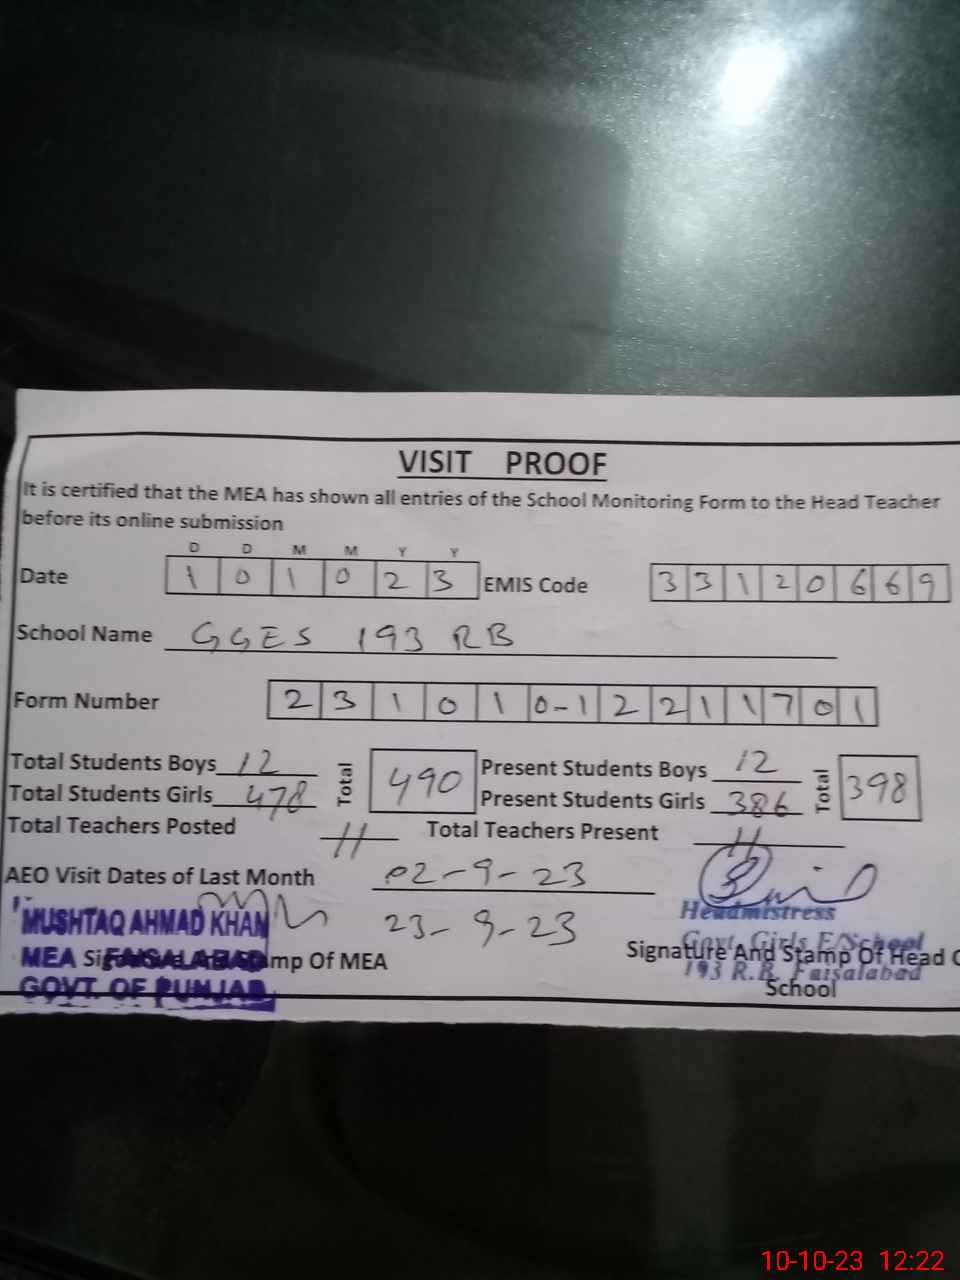 VISIT PROOF
It is certified that the MEA has shown all entries of the School Monitoring Form to the Head Teacher
before its online submission
D D M M Y Y
Date 1 0 1 0 2 3 EMIS Code 3 3 1 2 0 6 6 9
School Name GGES 193 RB
Form Number 2 3 1 0 1 0-1 2 2 1 1 7 0 1
Total Students Boys 12 Total 490 Present Students Boys 12 Total 398
Total Students Girls 478 Present Students Girls 386
Total Teachers Posted 11 Total Teachers Present 11
AEO Visit Dates of Last Month 02-9-23
23-9-23
MUSHTAQ AHMAD KHAN
MEA FAISALABAD
GOVT. OF PUNJAB
Stamp Of MEA
Headmistress
Govt. Girls E/School
193 R.B. Faisalabad
Signature And Stamp Of Head
School
10-10-23 12:22